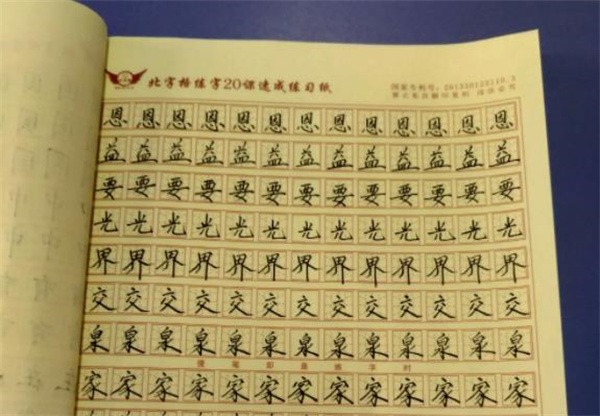 北字格练字20课速成练习纸
国家专利号：201330123110.3
禁止私自翻印复制 违法必究
恩恩恩恩恩恩恩恩恩恩恩恩恩
益益益益益益益益益益益益益
要要要要要要要要要要要要要
光光光光光光光光光光光光光
界界界界界界界界界界界界界
交交交交交交交交交交交交交
泉泉泉泉泉泉泉泉泉泉泉泉泉
提笔即是练字时
家家家家家家家家家家家家家